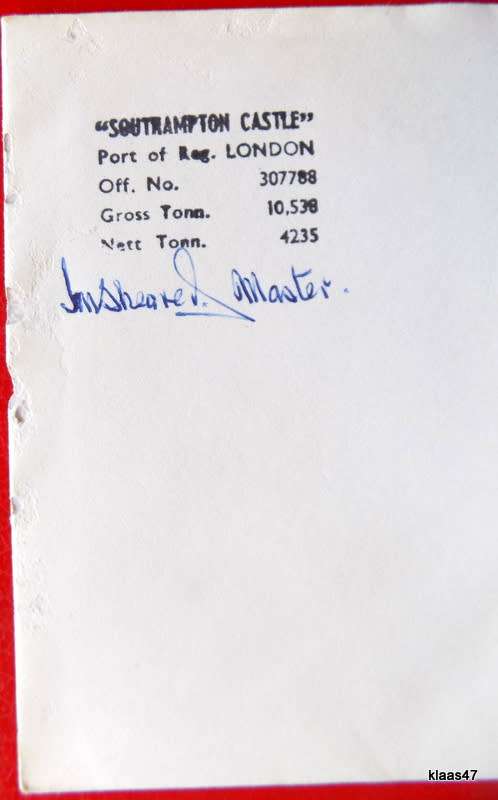 "SOUTHAMPTON CASTLE"
Port of Reg. LONDON
Off. No. 307788
Gross Tonn. 10,538
Nett Tonn. 4235
Master.
klaas47